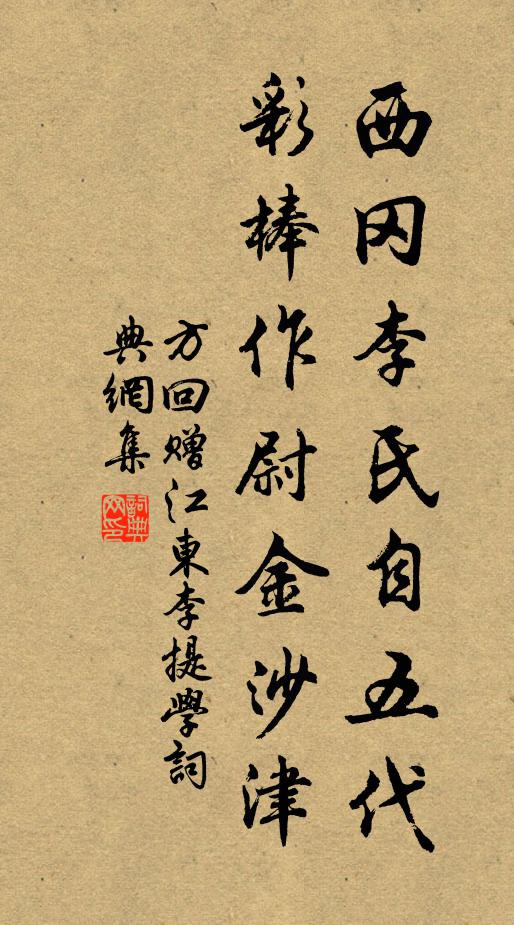 西冈李氏自五代
彩棒作尉金沙津
方回赠江東李提學詞
典網集
詞典網印